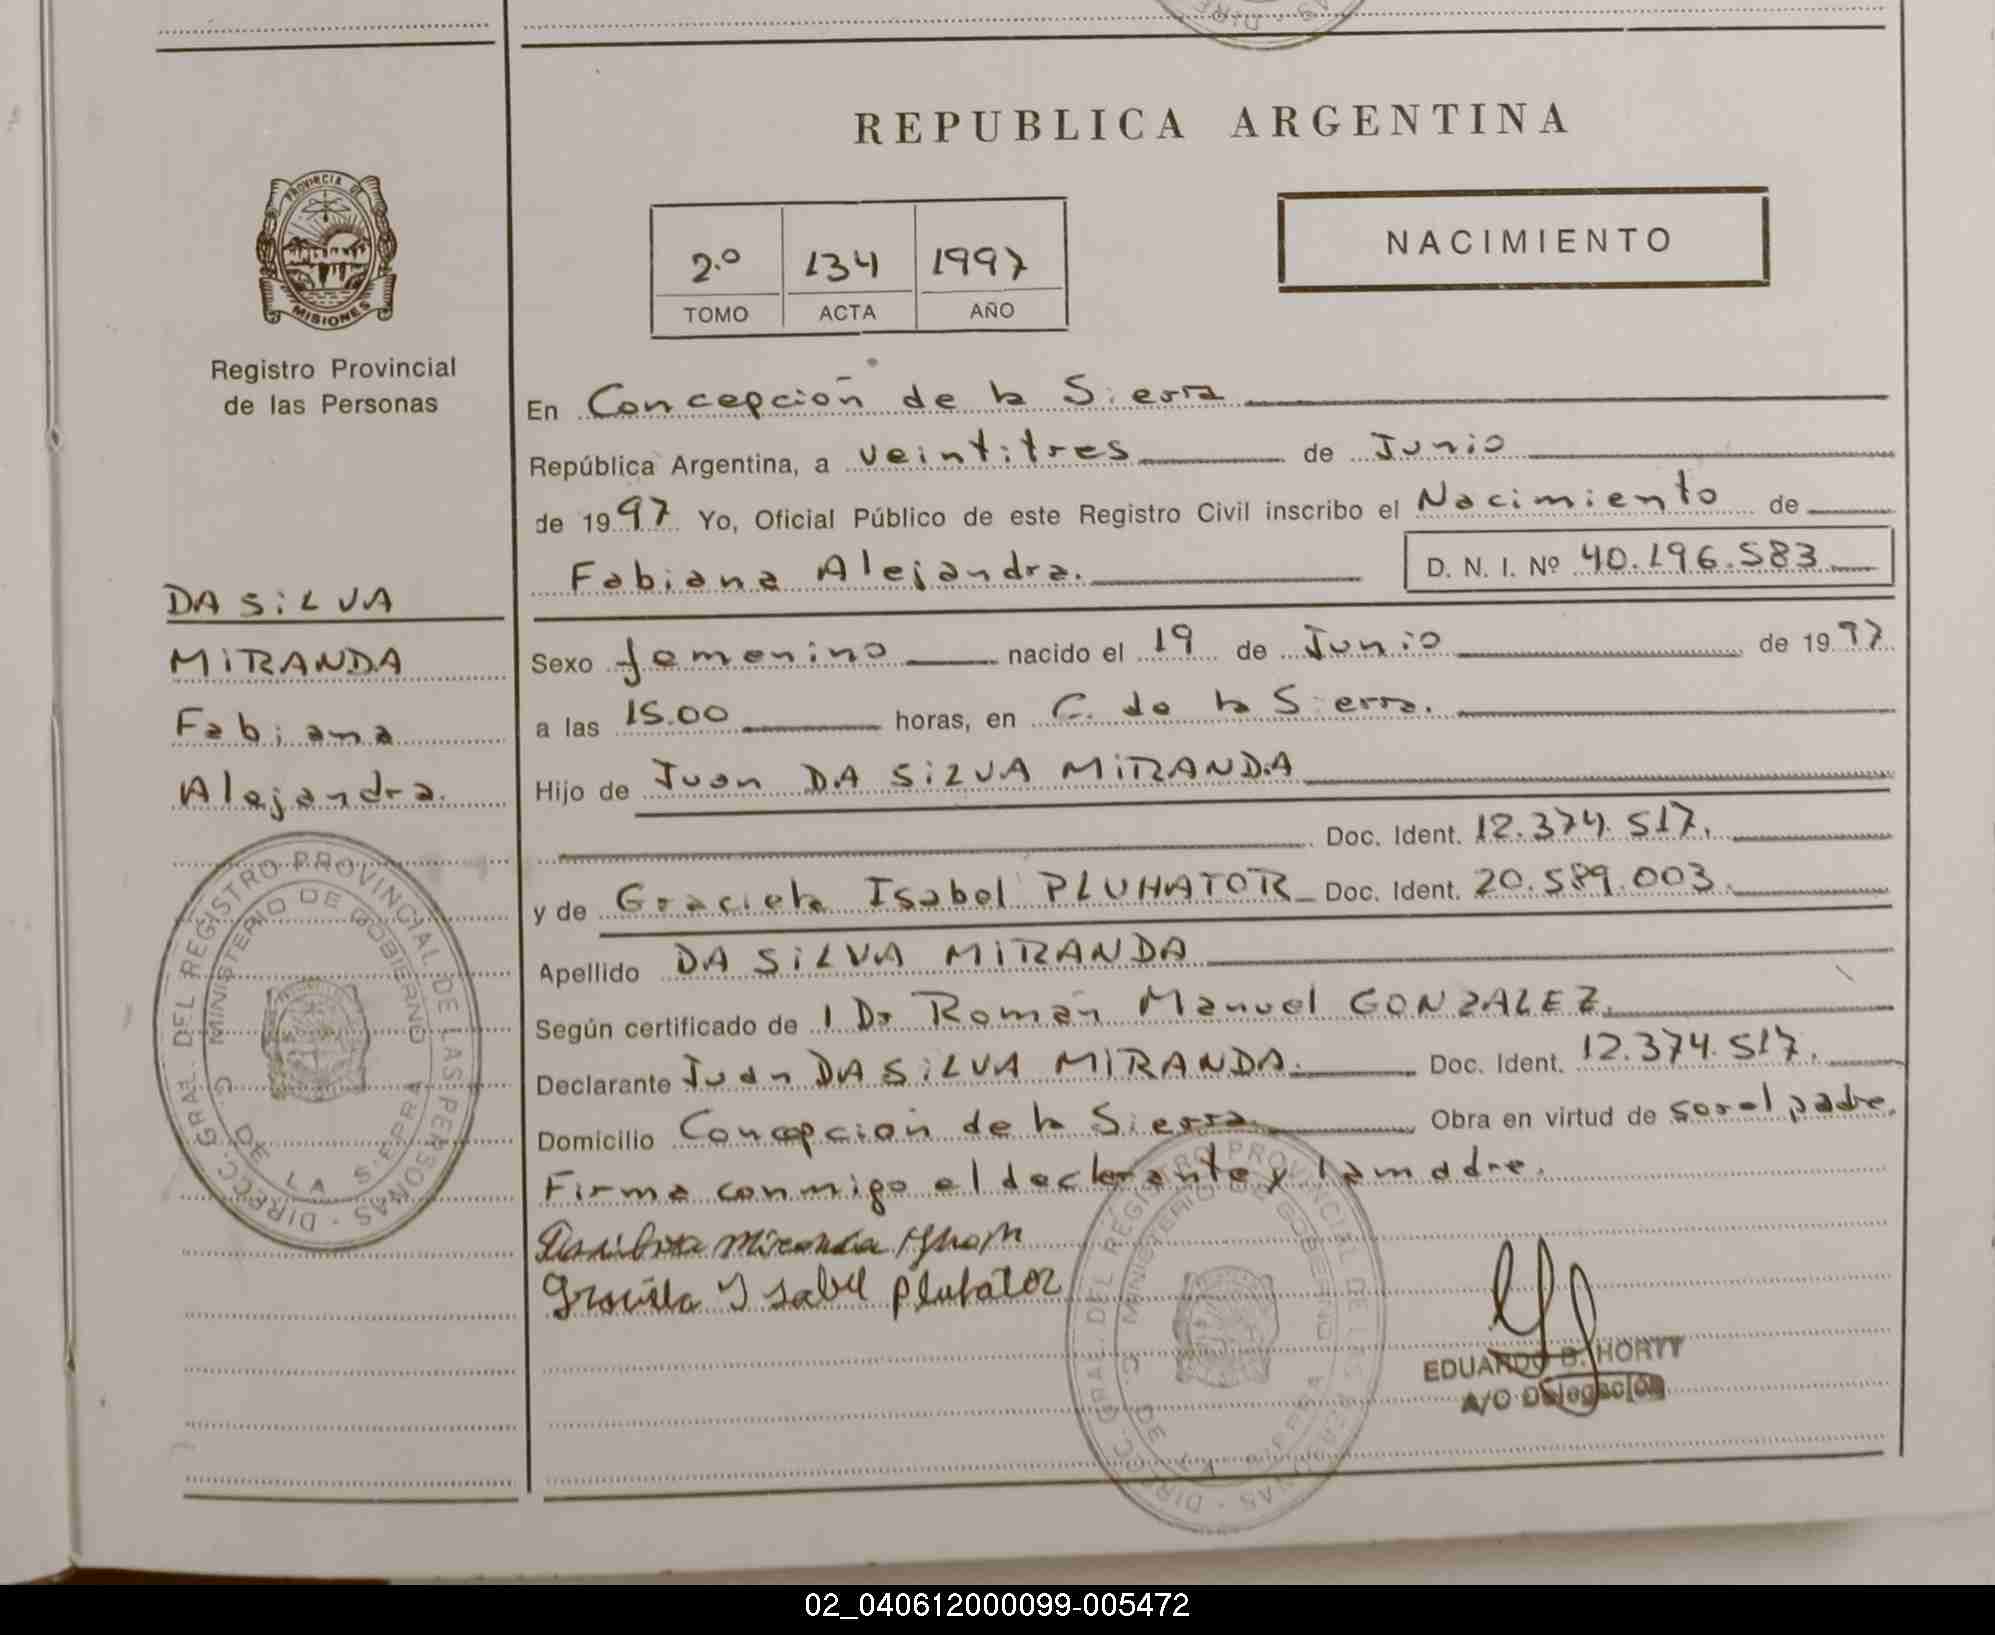 REPUBLICA ARGENTINA
PROVINCIA DE
MISIONES
Registro Provincial
de las Personas
2.º 134 1997
TOMO ACTA AÑO
NACIMIENTO
En Concepción de la Sierra
República Argentina, a veintitres de Junio
de 1997 Yo, Oficial Público de este Registro Civil inscribo el Nacimiento de
Fabiana Alejandra. D. N. I. Nº 40.196.583
DA SiLVA
MiRANDA
Fabiana
Alejandra.
Sexo femenino nacido el 19 de Junio de 1997
a las 15.00 horas, en C. de la Sierra.
Hijo de Juan DA SiLVA MiRANDA
Doc. Ident. 12.374.517.
y de Graciela Isabel PLUHATOR Doc. Ident. 20.589.003.
Apellido DA SiLVA MiRANDA
Según certificado de 1 Dr Román Manuel GONZALEZ.
Declarante Juan DA SiLVA MiRANDA. Doc. Ident. 12.374.517.
Domicilio Concepción de la Sierra Obra en virtud de ser el padre.
Firma conmigo el declarante y la madre.
Dasilva Miranda Juan
Graciela Isabel Pluhator
DIRECC. GRAL. DEL REGISTRO PROVINCIAL DE LAS PERSONAS
MINISTERIO DE GOBIERNO
C. DE LA SIERRA
DIRECC. GRAL. DEL REGISTRO PROVINCIAL DE LAS PERSONAS
MINISTERIO DE GOBIERNO
C. DE LA SIERRA
EDUARDO B. HORTT
A/C Delegación
02_040612000099-005472